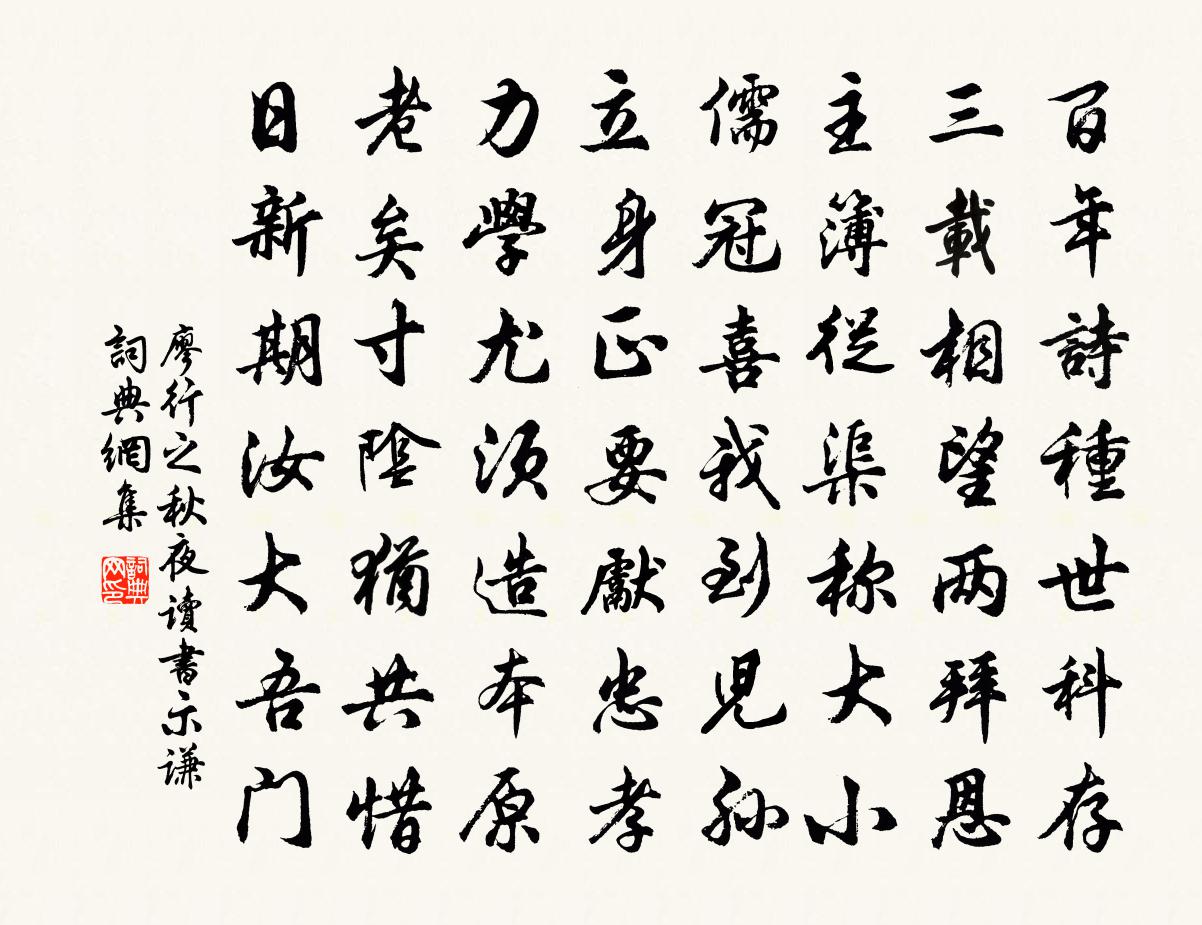 百年詩種世科存
三載相望两拜恩
主簿從渠称大小
儒冠喜我到児孙
立身正要獻忠孝
力學尤须造本原
老矣寸陰猶共惜
日新期汝大吾门
廖行之秋夜讀書示谦
詞典網集
詞典网印